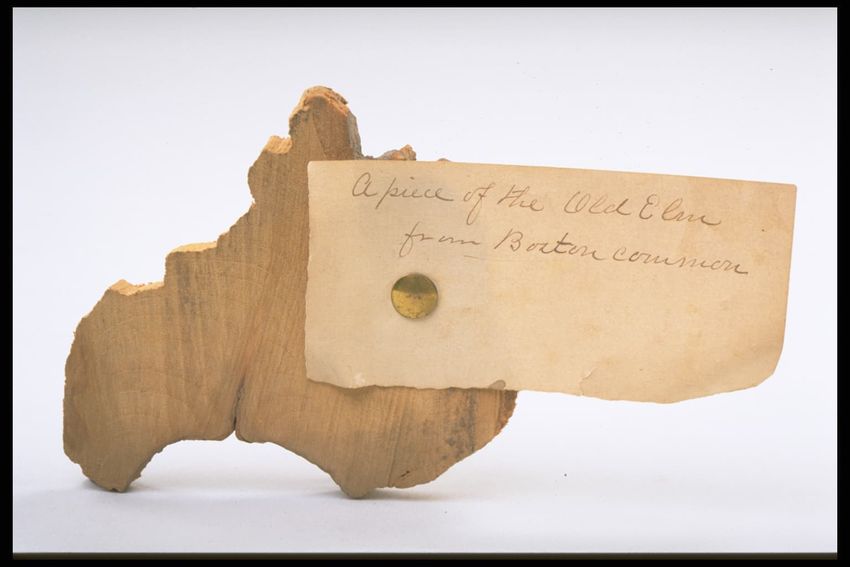 A piece of the Old Elm
from Boston common